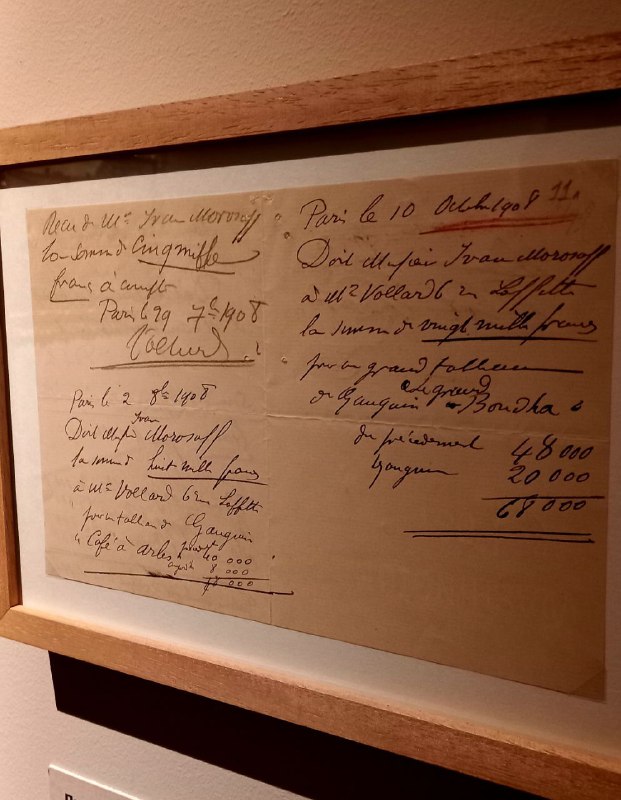 Recu de Mr Ivan Morosoff
la somme de Cinq mille
francs à compte
Paris le 29 7bre 1908
Vollard
Paris le 2 8bre 1908
Ivan
Doit Monsieur Morosoff
la somme de huit mille francs
à Mr Vollard 6 rue Laffitte
pour un tableau de Gauguin
" Café à Arles
40 000
8 000
48 000
11.
Paris le 10 Octobre 1908
Doit Monsieur Ivan Morosoff
à Mr Vollard 6 rue Laffitte
la somme de vingt mille francs
pour un grand tableau
de Gauguin Le grand Boudha
du précédement 48 000
Gauguin 20 000
68 000